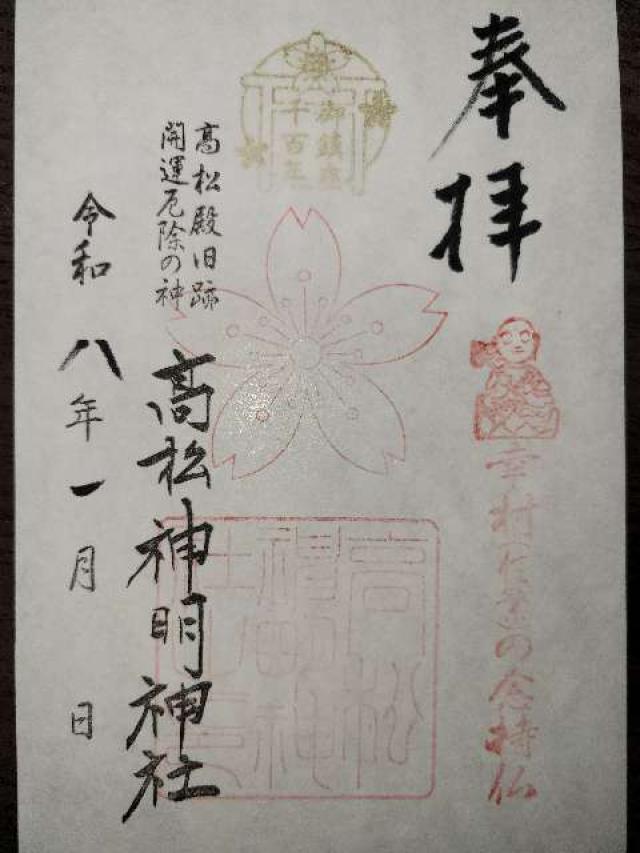 奉拝
幸村伝来の念持仏
御鎮座
千百年
高松殿旧跡
開運厄除の神
高松神明神社
令和八年一月 日